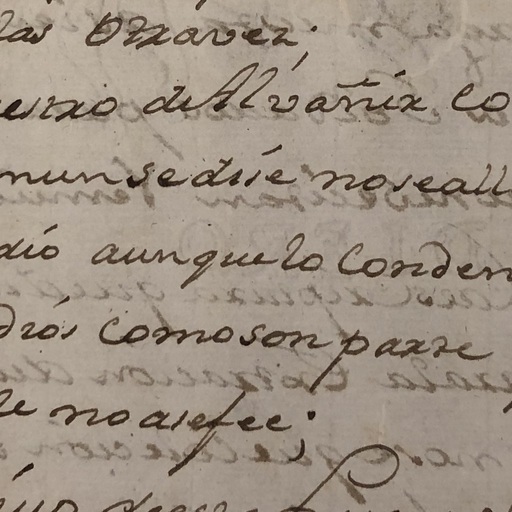 las Otravez;
estro de Alvañir co
mun se dise no se all
dio aunque lo Conden
drós como son parte
le no ase fee;